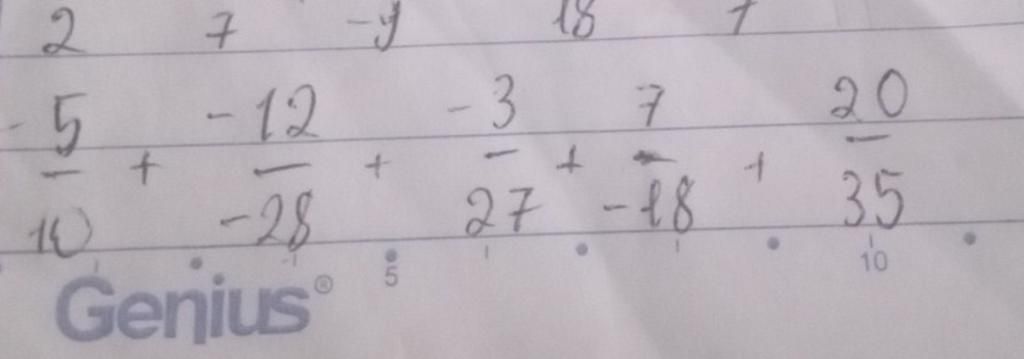 2 7 -y 18 7
-5/10 + -12/-28 + -3/27 + 7/-18 + 20/35
5 10
Genius®